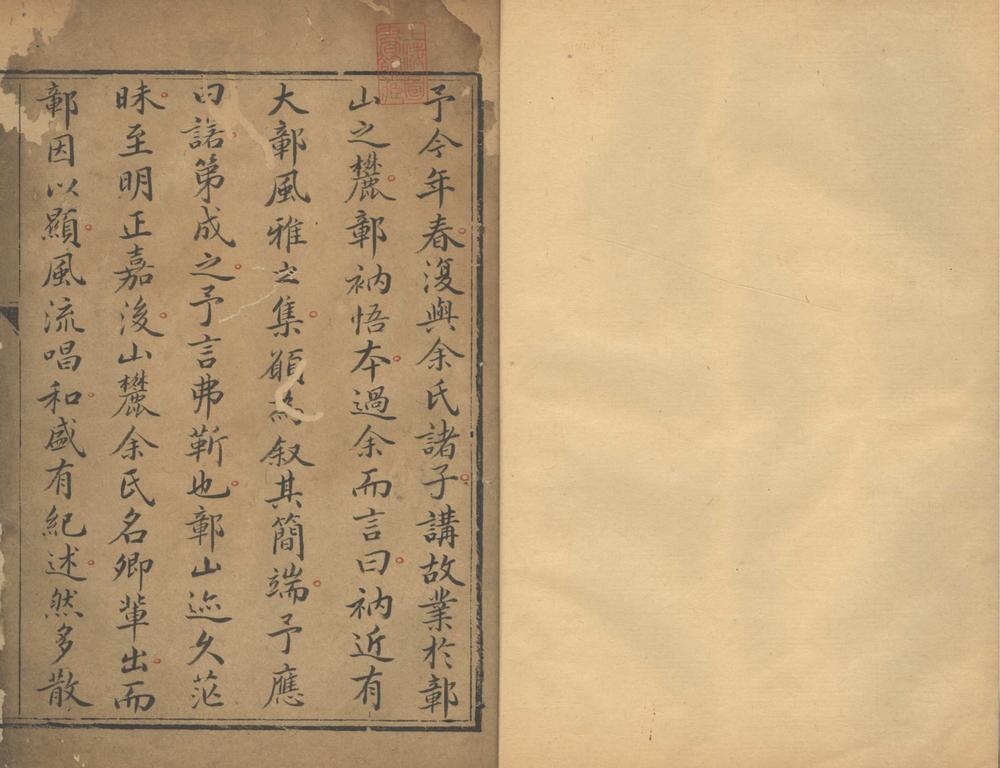 予今年春復與余氏諸子講故業於鄣
山之麓鄣衲悟本過余而言曰衲近有
大鄣風雅之集願為叙其簡端予應
曰諾第成之予言弗靳也鄣山迹久茫
昧至明正嘉後山麓余氏名卿輩出而
鄣因以顯風流唱和盛有紀述然多散